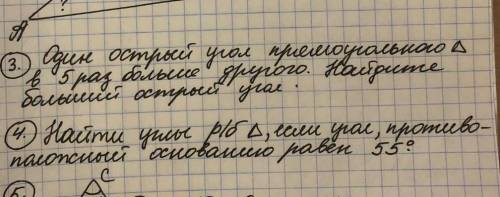 ?
A
3. Один острый угол прямоугольного △
в 5 раз больше другого. Найдите
больший острый угол.
4. Найти углы р/б △, если угол, противо-
положный основанию равен 55°
5. C